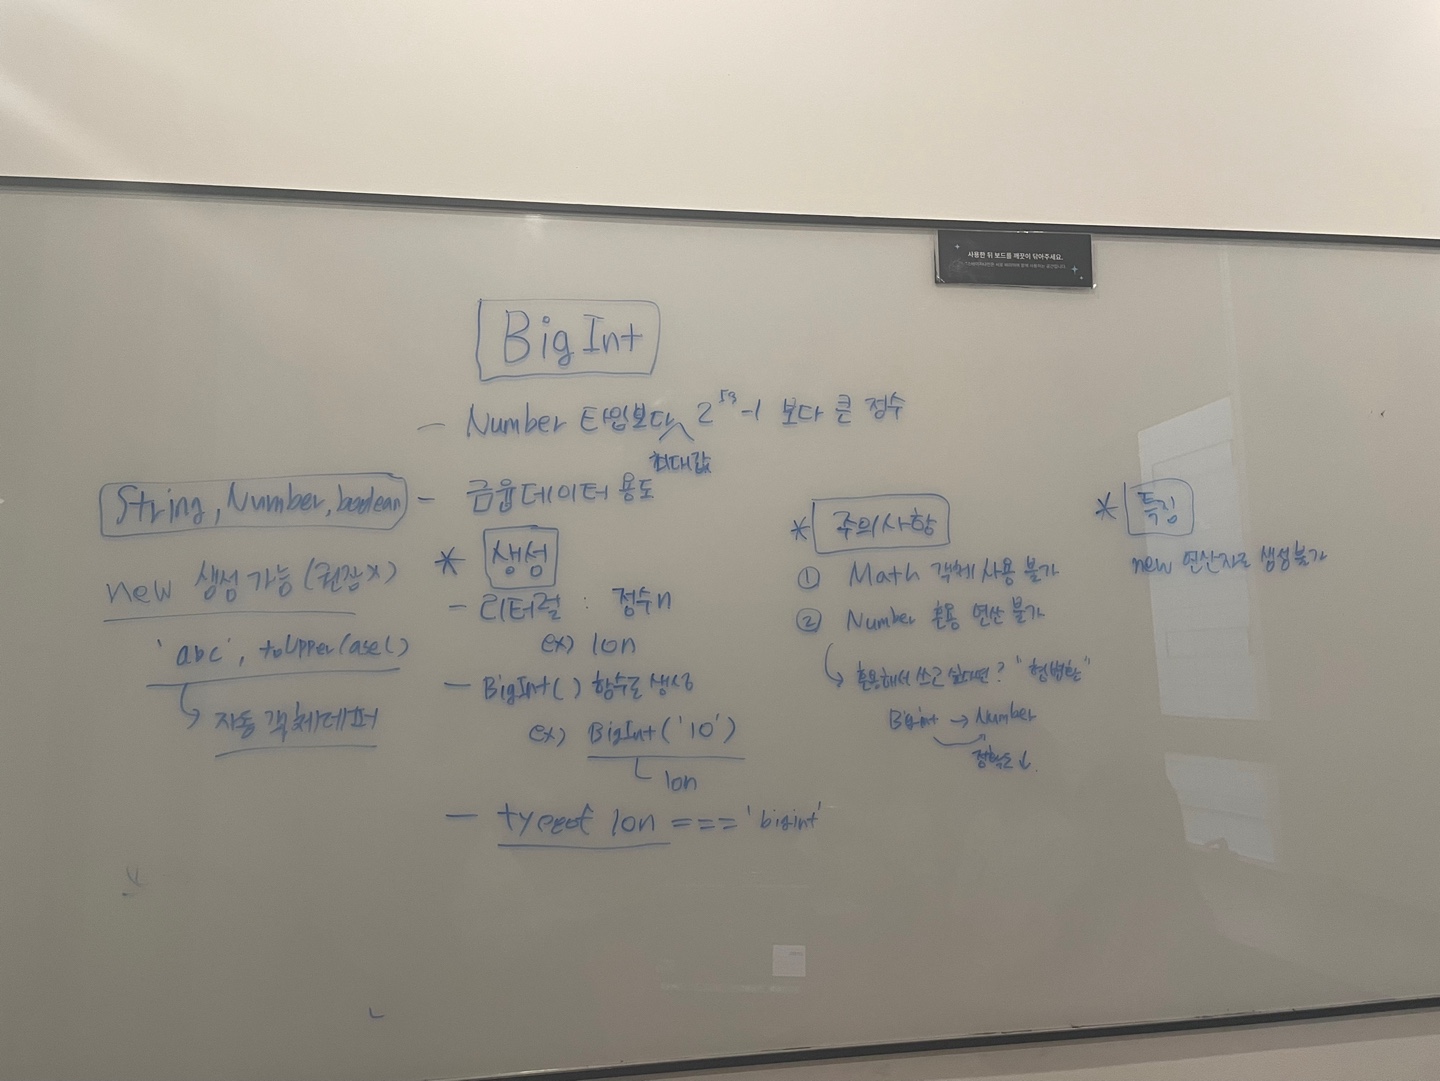 사용한 뒤 보드를 깨끗이 닦아주세요.
BigInt
- Number 타입보다 2^53-1 보다 큰 정수
최대값
- 금융데이터 용도
String, Number, boolean
new 생성 가능 (권장X)
'abc', toUpperCase()
자동 객체래퍼
* 생성
- 리터럴 : 정수n
ex) 10n
- BigInt() 함수로 생성
ex) BigInt('10')
10n
- typeof 10n === 'bigint'
* 주의사항
① Math 객체 사용 불가
② Number 혼용 연산 불가
혼용해서 쓰고 싶다면? "형변환"
Bigint → Number
정확도↓.
* 특징
new 연산자로 생성불가